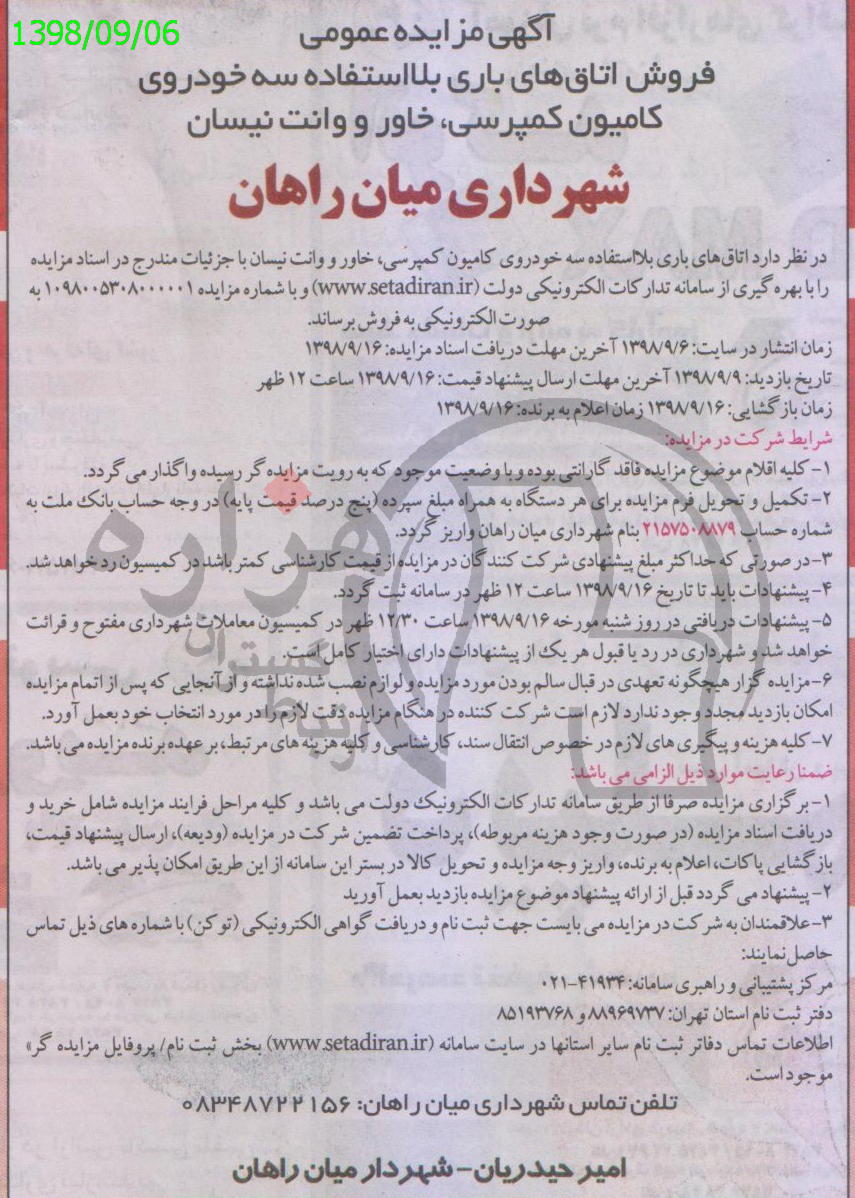 1398/09/06
آگهی مزایده عمومی
فروش اتاق‌های باری بلااستفاده سه خودروی
کامیون کمپرسی، خاور و وانت نیسان
شهرداری میان راهان
در نظر دارد اتاق‌های باری بلااستفاده سه خودروی کامیون کمپرسی، خاور و وانت نیسان با جزئیات مندرج در اسناد مزایده
را با بهره گیری از سامانه تدارکات الکترونیکی دولت (www.setadiran.ir) و با شماره مزایده ۱۰۹۸۰۰۵۳۰۸۰۰۰۰۰۱ به
صورت الکترونیکی به فروش برساند.
زمان انتشار در سایت: ۱۳۹۸/۹/۶ آخرین مهلت دریافت اسناد مزایده: ۱۳۹۸/۹/۱۶
تاریخ بازدید: ۱۳۹۸/۹/۹ آخرین مهلت ارسال پیشنهاد قیمت: ۱۳۹۸/۹/۱۶ ساعت ۱۲ ظهر
زمان بازگشایی: ۱۳۹۸/۹/۱۶ زمان اعلام به برنده: ۱۳۹۸/۹/۱۶
شرایط شرکت در مزایده:
۱- کلیه اقلام موضوع مزایده فاقد گارانتی بوده و با وضعیت موجود که به رویت مزایده گر رسیده واگذار می گردد.
۲- تکمیل و تحویل فرم مزایده برای هر دستگاه به همراه مبلغ سپرده (پنج درصد قیمت پایه) در وجه حساب بانک ملت به
شماره حساب ۲۱۵۷۵۰۸۸۷۹ بنام شهرداری میان راهان واریز گردد.
۳- در صورتی که حداکثر مبلغ پیشنهادی شرکت کنندگان در مزایده از قیمت کارشناسی کمتر باشد در کمیسیون رد خواهد شد.
۴- پیشنهادات باید تا تاریخ ۱۳۹۸/۹/۱۶ ساعت ۱۲ ظهر در سامانه ثبت گردد.
۵- پیشنهادات دریافتی در روز شنبه مورخه ۱۳۹۸/۹/۱۶ ساعت ۱۲/۳۰ ظهر در کمیسیون معاملات شهرداری مفتوح و قرائت
خواهد شد و شهرداری در رد یا قبول هر یک از پیشنهادات دارای اختیار کامل است.
۶- مزایده گزار هیچگونه تعهدی در قبال سالم بودن مورد مزایده و لوازم نصب شده نداشته و از آنجایی که پس از اتمام مزایده
امکان بازدید مجدد وجود ندارد لازم است شرکت کننده در هنگام مزایده دقت لازم را در مورد انتخاب خود بعمل آورد.
۷- کلیه هزینه و پیگیری های لازم در خصوص انتقال سند، کارشناسی و کلیه هزینه های مرتبط، بر عهده برنده مزایده می باشد.
ضمنا رعایت موارد ذیل الزامی می باشد:
۱- برگزاری مزایده صرفا از طریق سامانه تدارکات الکترونیک دولت می باشد و کلیه مراحل فرایند مزایده شامل خرید و
دریافت اسناد مزایده (در صورت وجود هزینه مربوطه)، پرداخت تضمین شرکت در مزایده (ودیعه)، ارسال پیشنهاد قیمت،
بازگشایی پاکات، اعلام به برنده، واریز وجه مزایده و تحویل کالا در بستر این سامانه از این طریق امکان پذیر می باشد.
۲- پیشنهاد می گردد قبل از ارائه پیشنهاد موضوع مزایده بازدید بعمل آورید
۳- علاقمندان به شرکت در مزایده می بایست جهت ثبت نام و دریافت گواهی الکترونیکی (توکن) با شماره های ذیل تماس
حاصل نمایند:
مرکز پشتیبانی و راهبری سامانه: ۴۱۹۳۴-۰۲۱
دفتر ثبت نام استان تهران: ۸۸۹۶۹۷۳۷ و ۸۵۱۹۳۷۶۸
اطلاعات تماس دفاتر ثبت نام سایر استانها در سایت سامانه (www.setadiran.ir) بخش ثبت نام/ پروفایل مزایده گر»
موجود است.
تلفن تماس شهرداری میان راهان: ۰۸۳۴۸۷۲۲۱۵۶
امیر حیدریان - شهردار میان راهان
هزاره